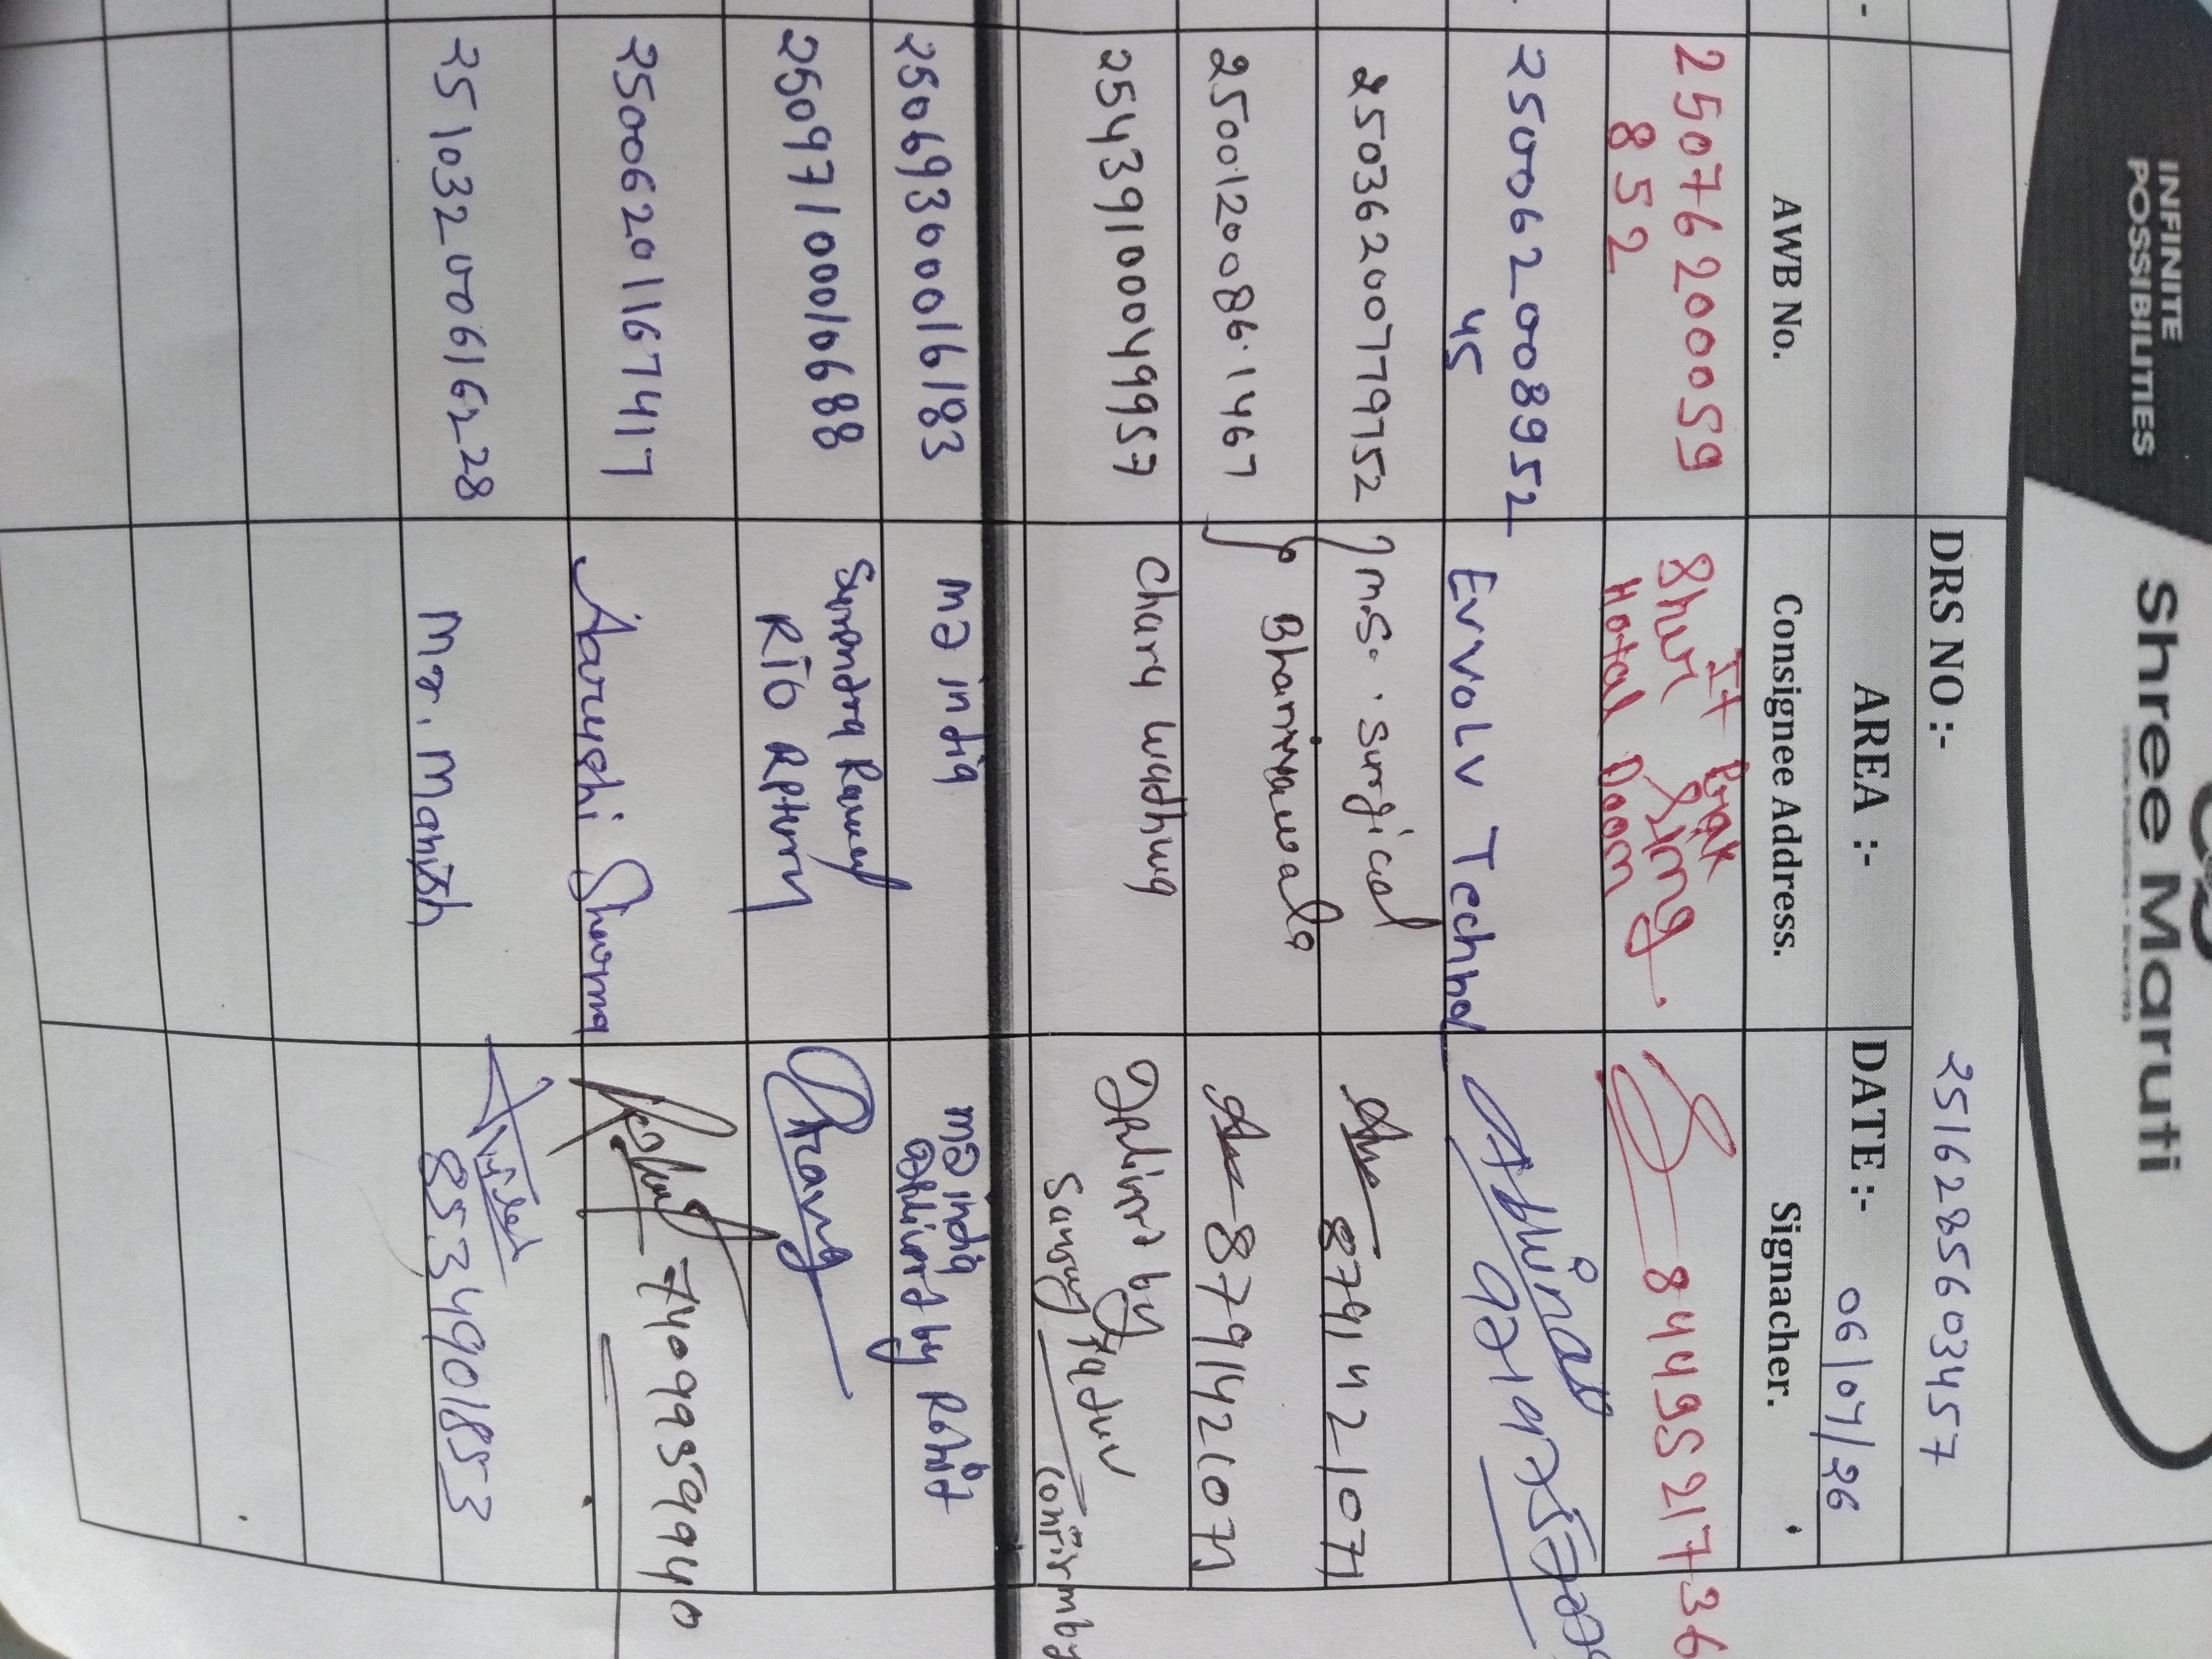 INFINITE
POSSIBILITIES
Shree Maruti
DRS NO :- 2516285603457
AREA :-
DATE :- 06/04/26
AWB No.
Consignee Address.
Signacher.
2507620059
852
Hotal Doom
8449521736
250062008952
45
EVVOLV Techno
Abhinab
25036200779752
M.S. Surgical
8791421071
25001200861467
Bhaniyawala
8791421071
25439100049957
Charu Wadhwa
Delivery by
Sanjay Yadav
Confirm by
25069300016183
M2 india
M2 india
Delivery by Rohit
25097100010688
Surendra Rawat
25006201167417
Aarushi Sharma
7409959940
25103200616228
Mr. Manish
8534901853